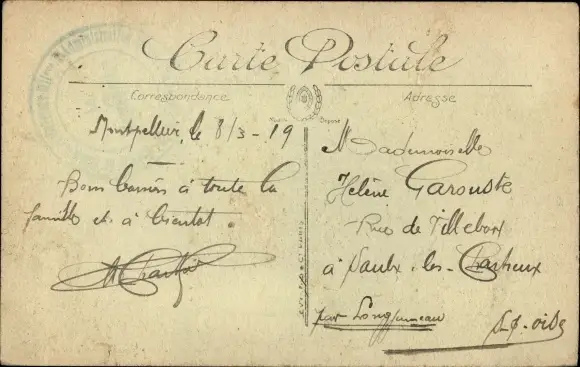 Carte Postale
Correspondance
Adresse
Montpellier, le 8/3 - 19
Bons baisers à toute la
famille et à bientôt.
Mademoiselle
Hélène Garouste
Rue de Villebon
à Saulx-les-Chartreux
par Longjumeau
S.&-Oise